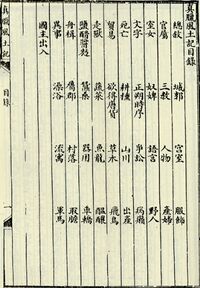 真臘風土記目錄
總敘 城郭 宮室 服飾
官屬 三教 人物 產婦
室女 奴婢 語言 野人
文字 正朔時序 爭訟 病癩
死亡 耕種 山川 出產
貿易 欲得唐貨 草木 飛鳥
走獸 蔬菜 魚龍 醞釀
鹽醋醬麪 蠶桑 器用 車轎
舟楫 屬郡 村落 取膽
異事 澡浴 流寓 軍馬
國主出入
真臘風土記 目錄 一